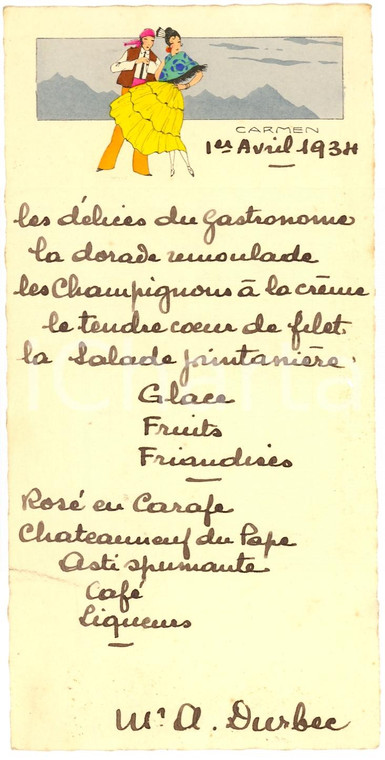 CARMEN
1er Avril 1934
les délices du Gastronome
la dorade remoulade
les Champignons à la crème
le tendre coeur de filet.
la Salade printanière.
Glace
Fruits
Friandises
Rosé en Carafe
Chateauneuf du Pape
Asti spumante
Café
Liqueurs
Mr A. Durbec